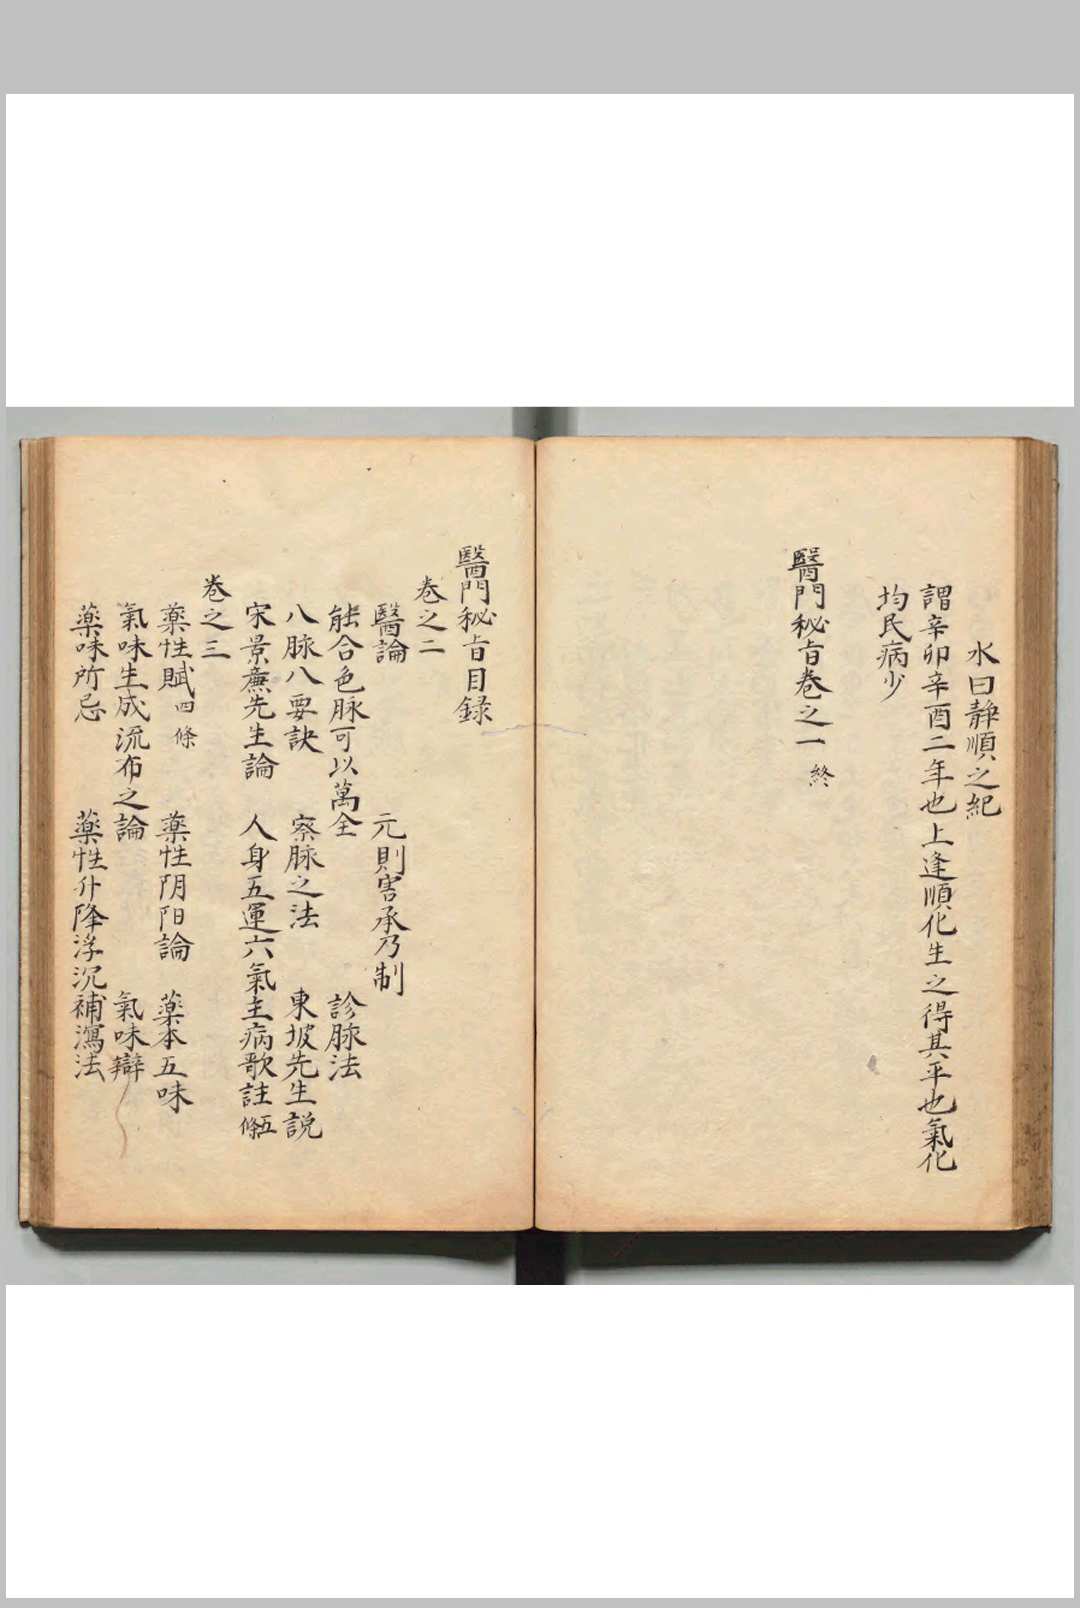 水曰静順之紀
謂辛卯辛酉二年也上逢順化生之得其平也氣化
均民病少
醫門秘旨卷之一 終
醫門秘旨目録
卷之二
醫論 元則害承乃制
能合色脉可以萬全 診脉法
八脉八要訣 察脉之法 東坡先生説
宋景㢘先生論 人身五運六氣主病歌註 五條
卷之三
藥性賦 四條 藥性阴阳論 藥本五味
氣味生成流布之論 氣味辯
藥味所忌 藥性升降浮沉補瀉法